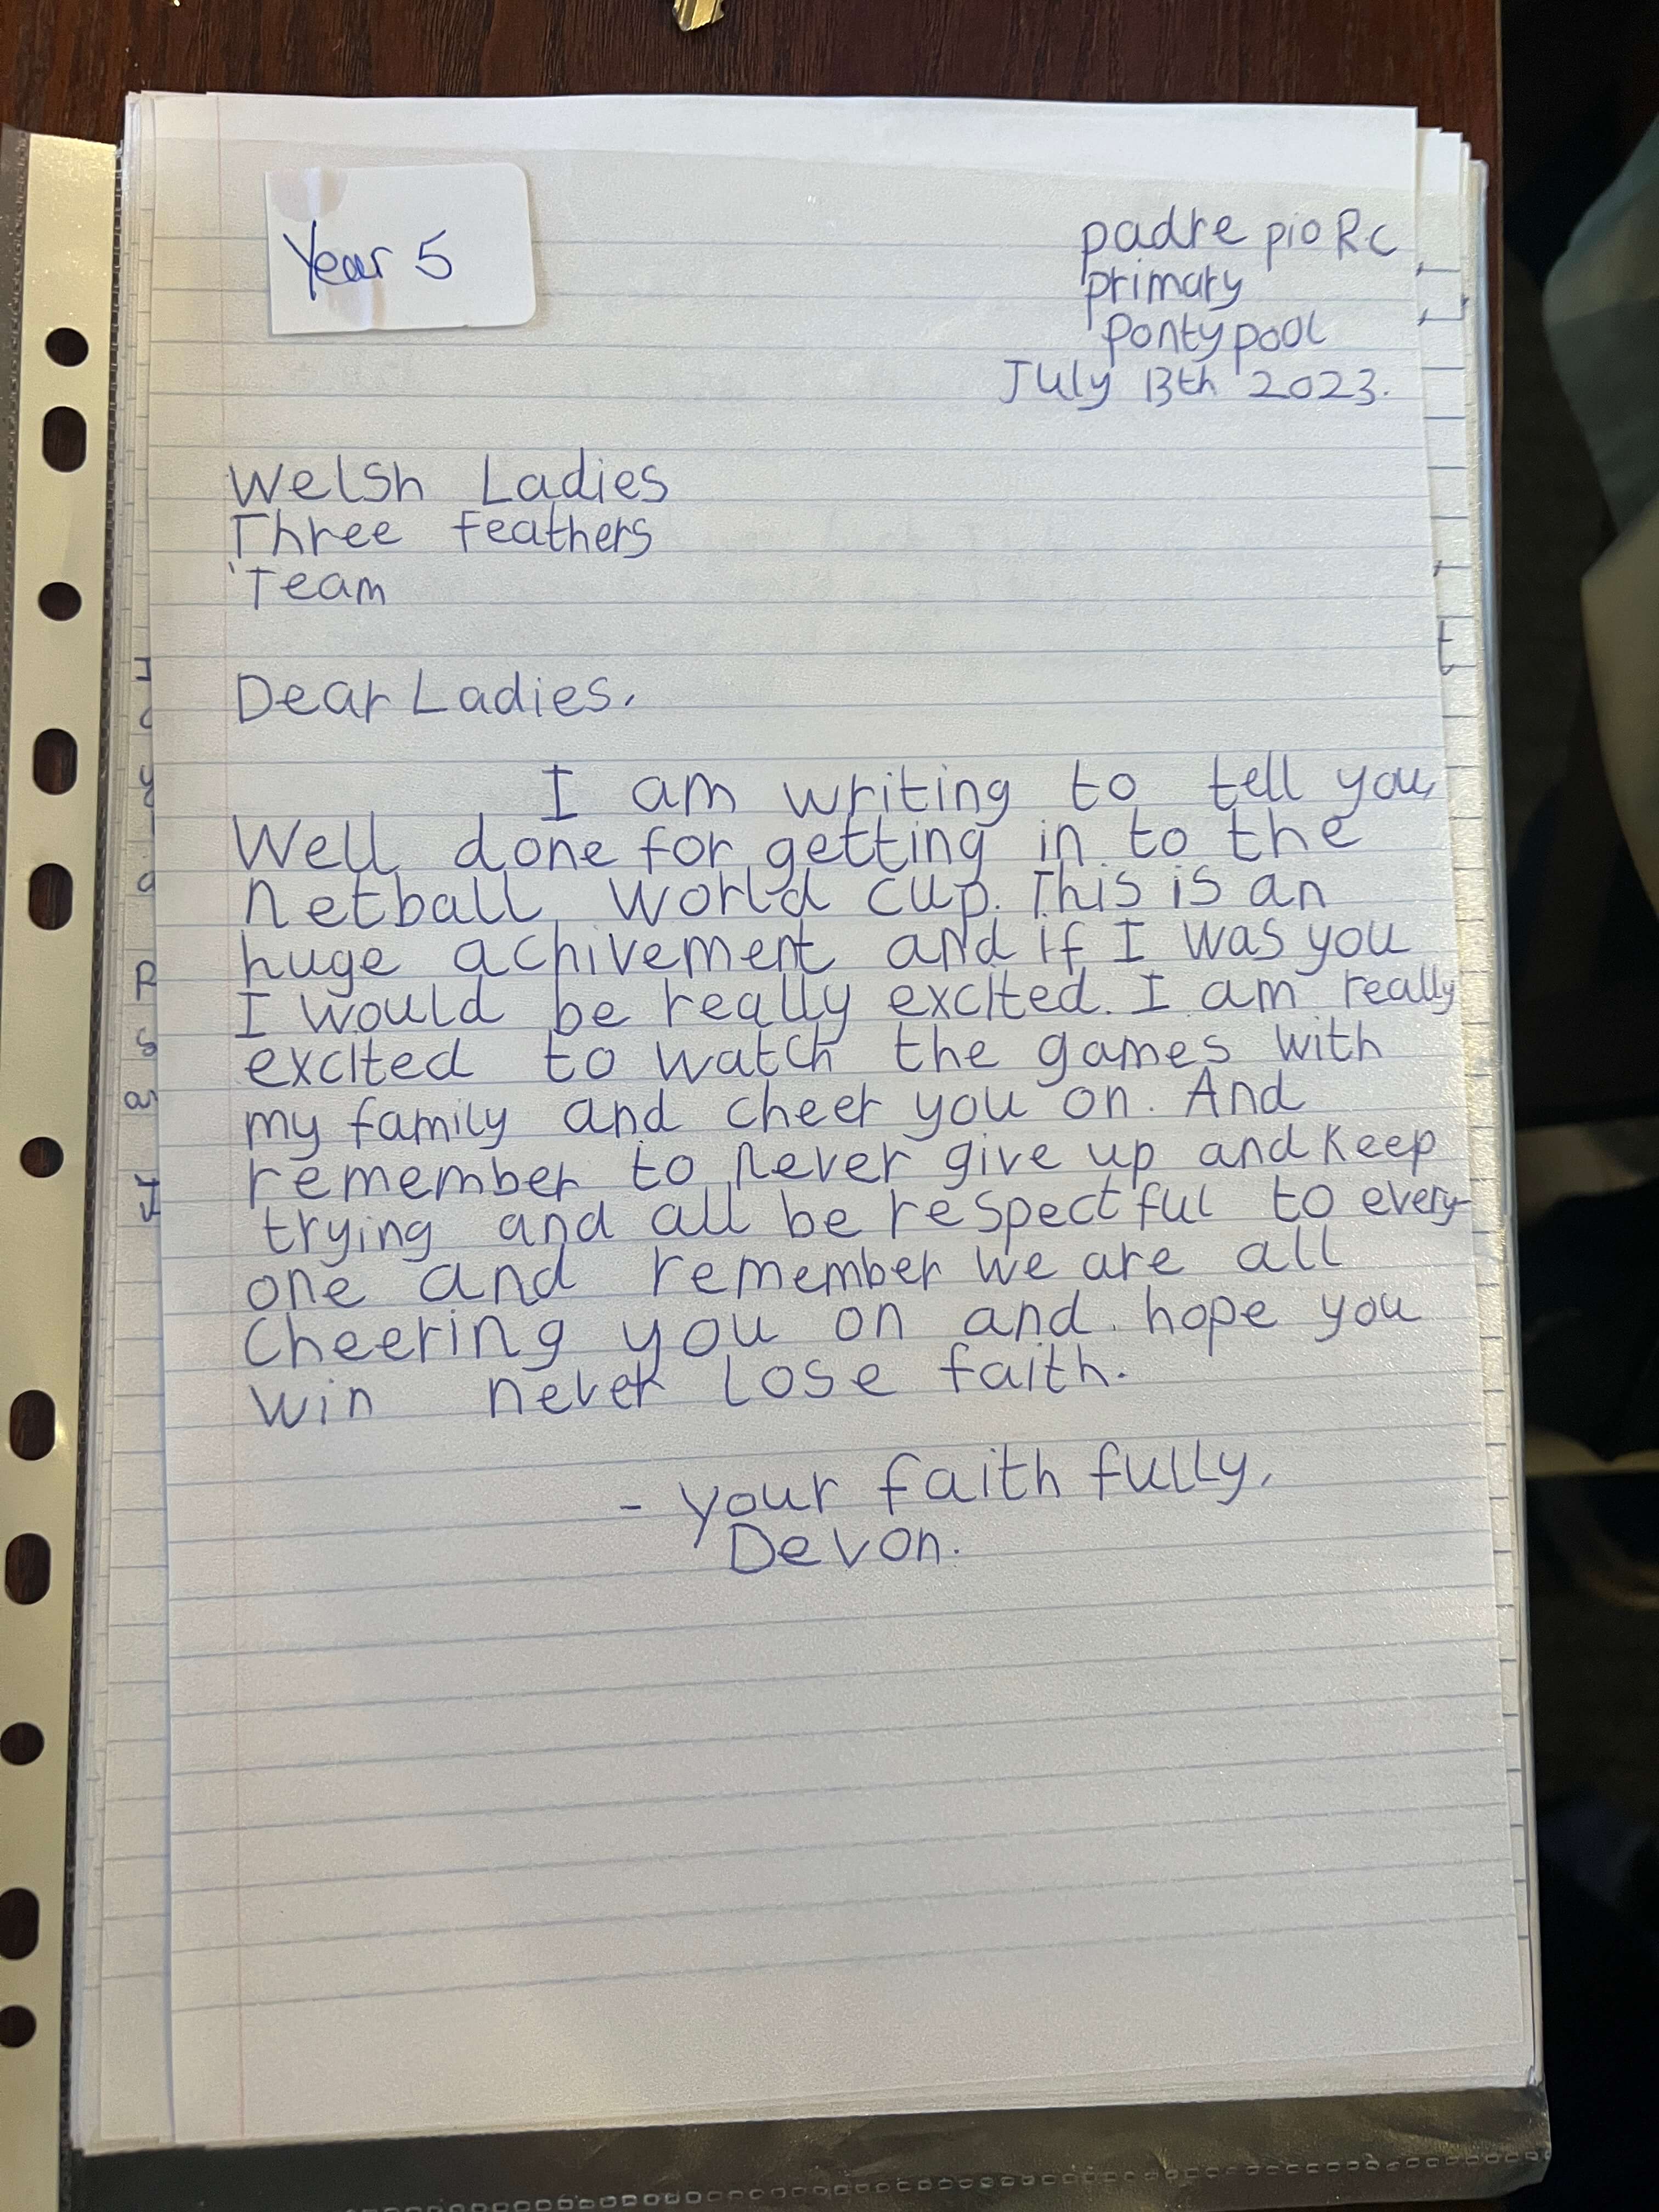 Year 5
padre pio Rc
primary
Pontypool
July 13th 2023.
Welsh Ladies
Three feathers
Team
Dear Ladies,
I am writing to tell you,
Well done for getting in to the
netball world cup. This is an
huge achivement and if I was you
I would be really excited. I am really
excited to watch the games with
my family and cheer you on. And
remember to never give up and keep
trying and all be respectful to every-
one and remember we are all
cheering you on and hope you
win never lose faith.
- your faith fully,
Devon.